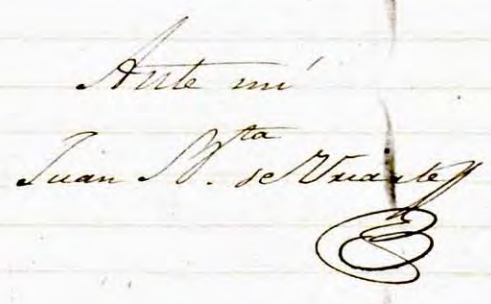 Ante mí
Juan B.ta de Uriarte